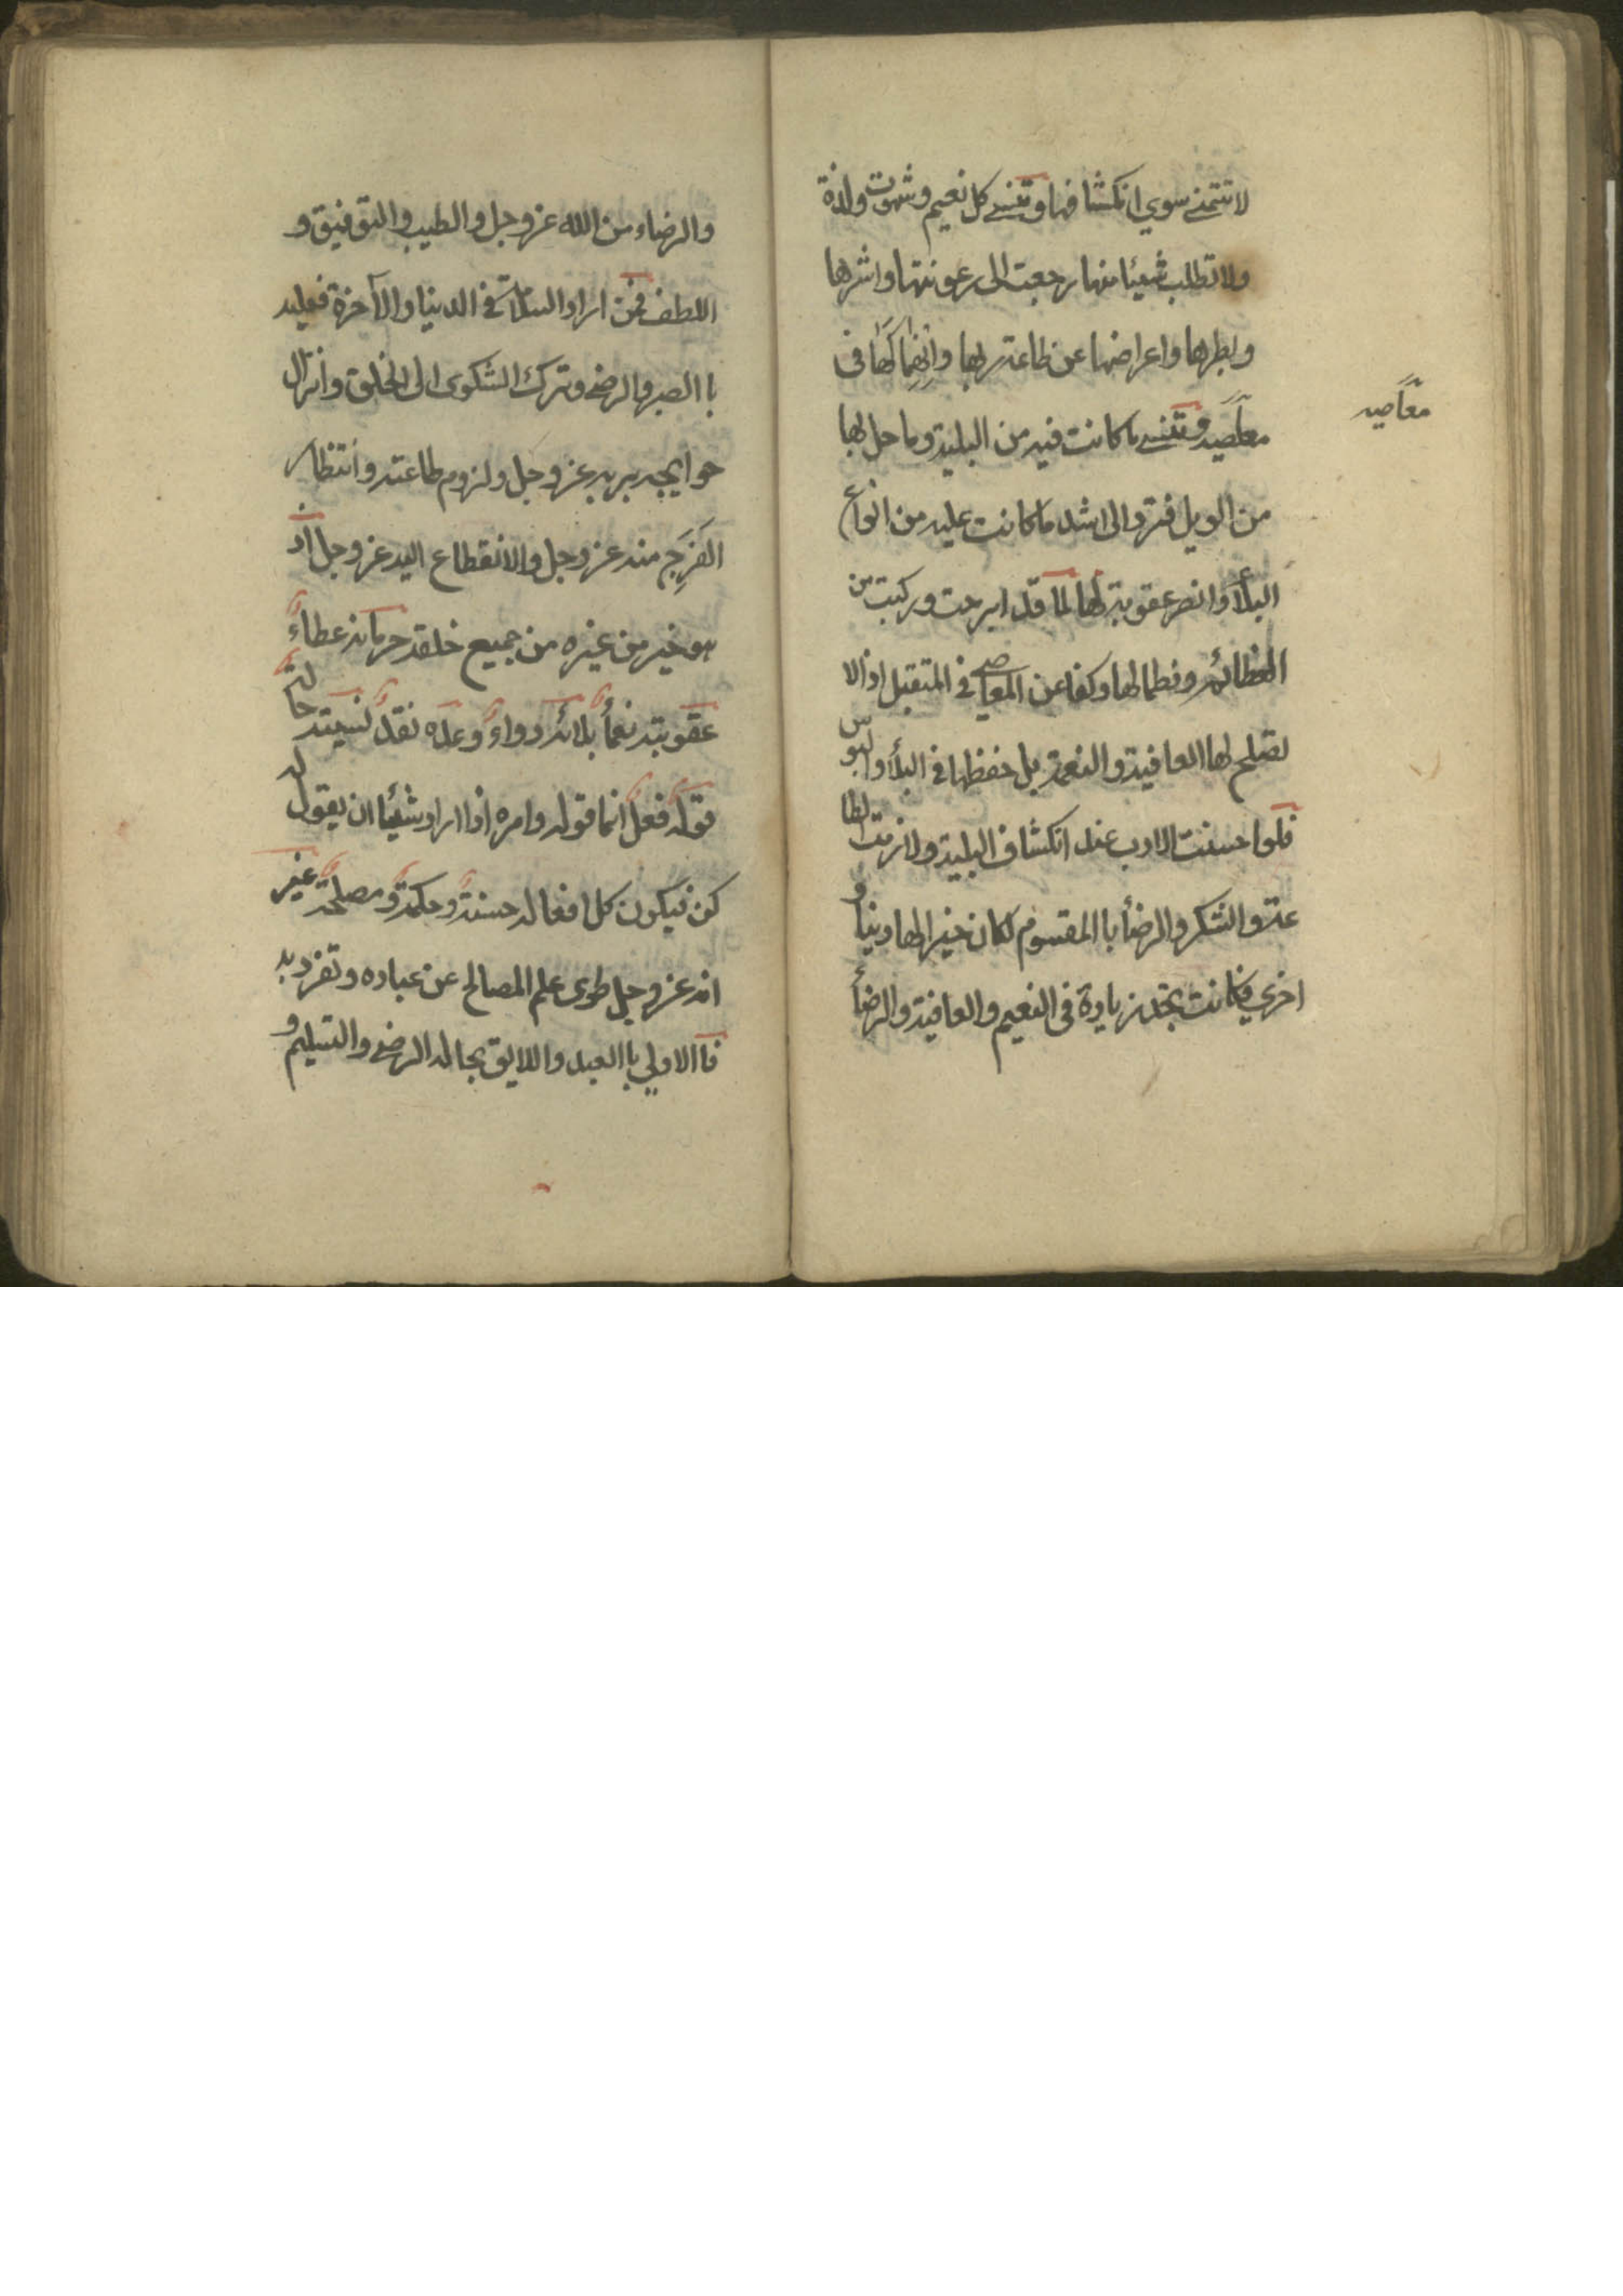 لا تتمنے سوي انكشافها و تنسے كل نعيم و شهوت ولذة
ولا تطلب شيئا منها رجعت الى رعونتها واشرها
وبطرها واعراضها عن طاعة ربها وانهماكها فى
معاصيه و تنسے ما كانت فيه من البلية وما حل بها
معاصيه
من الويل فترد الى اشد ما كانت عليه من انواع
البلأ و الضر عقوبة لها لما قد اجرحت وركبت من
العظائم وفطما لها وكفا عن المعاصے فى المتقبل اذ لا
تصلح لها العافية والنعمة بل حفظها فى البلأ والبوس
فلو احسنت الادب عند انكشاف البلية ولازمت الطا
عة و الشكر والرضأ با المقسوم لكان خيرا لها دنيا و
اخرى فكانت تجد زيادة فى النعيم والعافية والرضأ
والرضاء من الله عز وجل والطيب والتوفيق و
اللطف فمن اراد السلامة فى الدنيا والآخرة فعليه
با الصبر والرضے وترك الشكوى الى الخلق وانزال
حوايجه بربه عز وجل ولزوم طاعته وانتظار
الفرج منه عز وجل والانقطاع اليه عز وجل اذ
هو خير من غيره من جميع خلقه حرمانه عطاء
عقوبته نعمأ بلائه دواء وعده نقد نسيته حالة
قوله فعل انما قوله وامره اذا اراد شيئا ان يقول له
كن فيكون كل افعاله حسنة و حكمة و مصلحة غير
انه عز وجل طوى علم المصالح عن عباده وتفرد به
فا الاولي با العبد واللايق بحاله الرضے والتسليم و